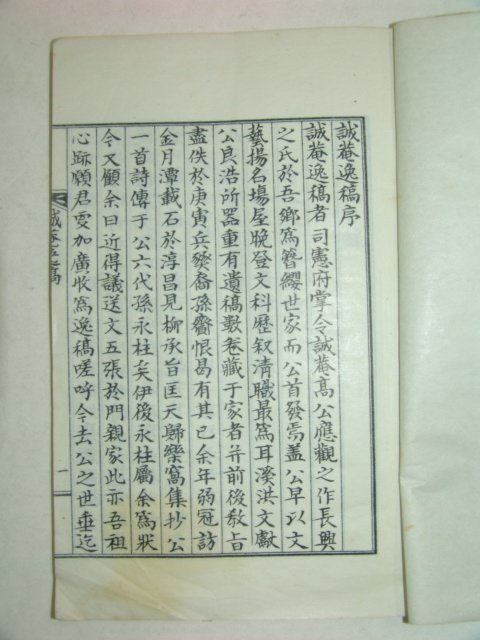 誠菴逸稿序
誠菴逸稿者司憲府掌令誠菴高公應觀之作長興
之氏於吾鄉爲簪纓世家而公首發焉盖公早以文
藝揚名場屋晚登文科歷叙清職最爲耳溪洪文獻
公良浩所器重有遺稿數卷藏于家者并前後敎旨
盡佚於庚寅兵燹裔孫齎恨曷有其已余年弱冠訪
金月潭載石於淳昌見柳承旨匡天歸樂窩集抄公
一首詩傳于公六代孫永柱矣伊後永柱屬余爲狀
今又顧余曰近得議送文五張於門親家此亦吾祖
心跡願君更加廣收爲逸稿嗟呼今去公之世垂迄
誠菴逸稿
一